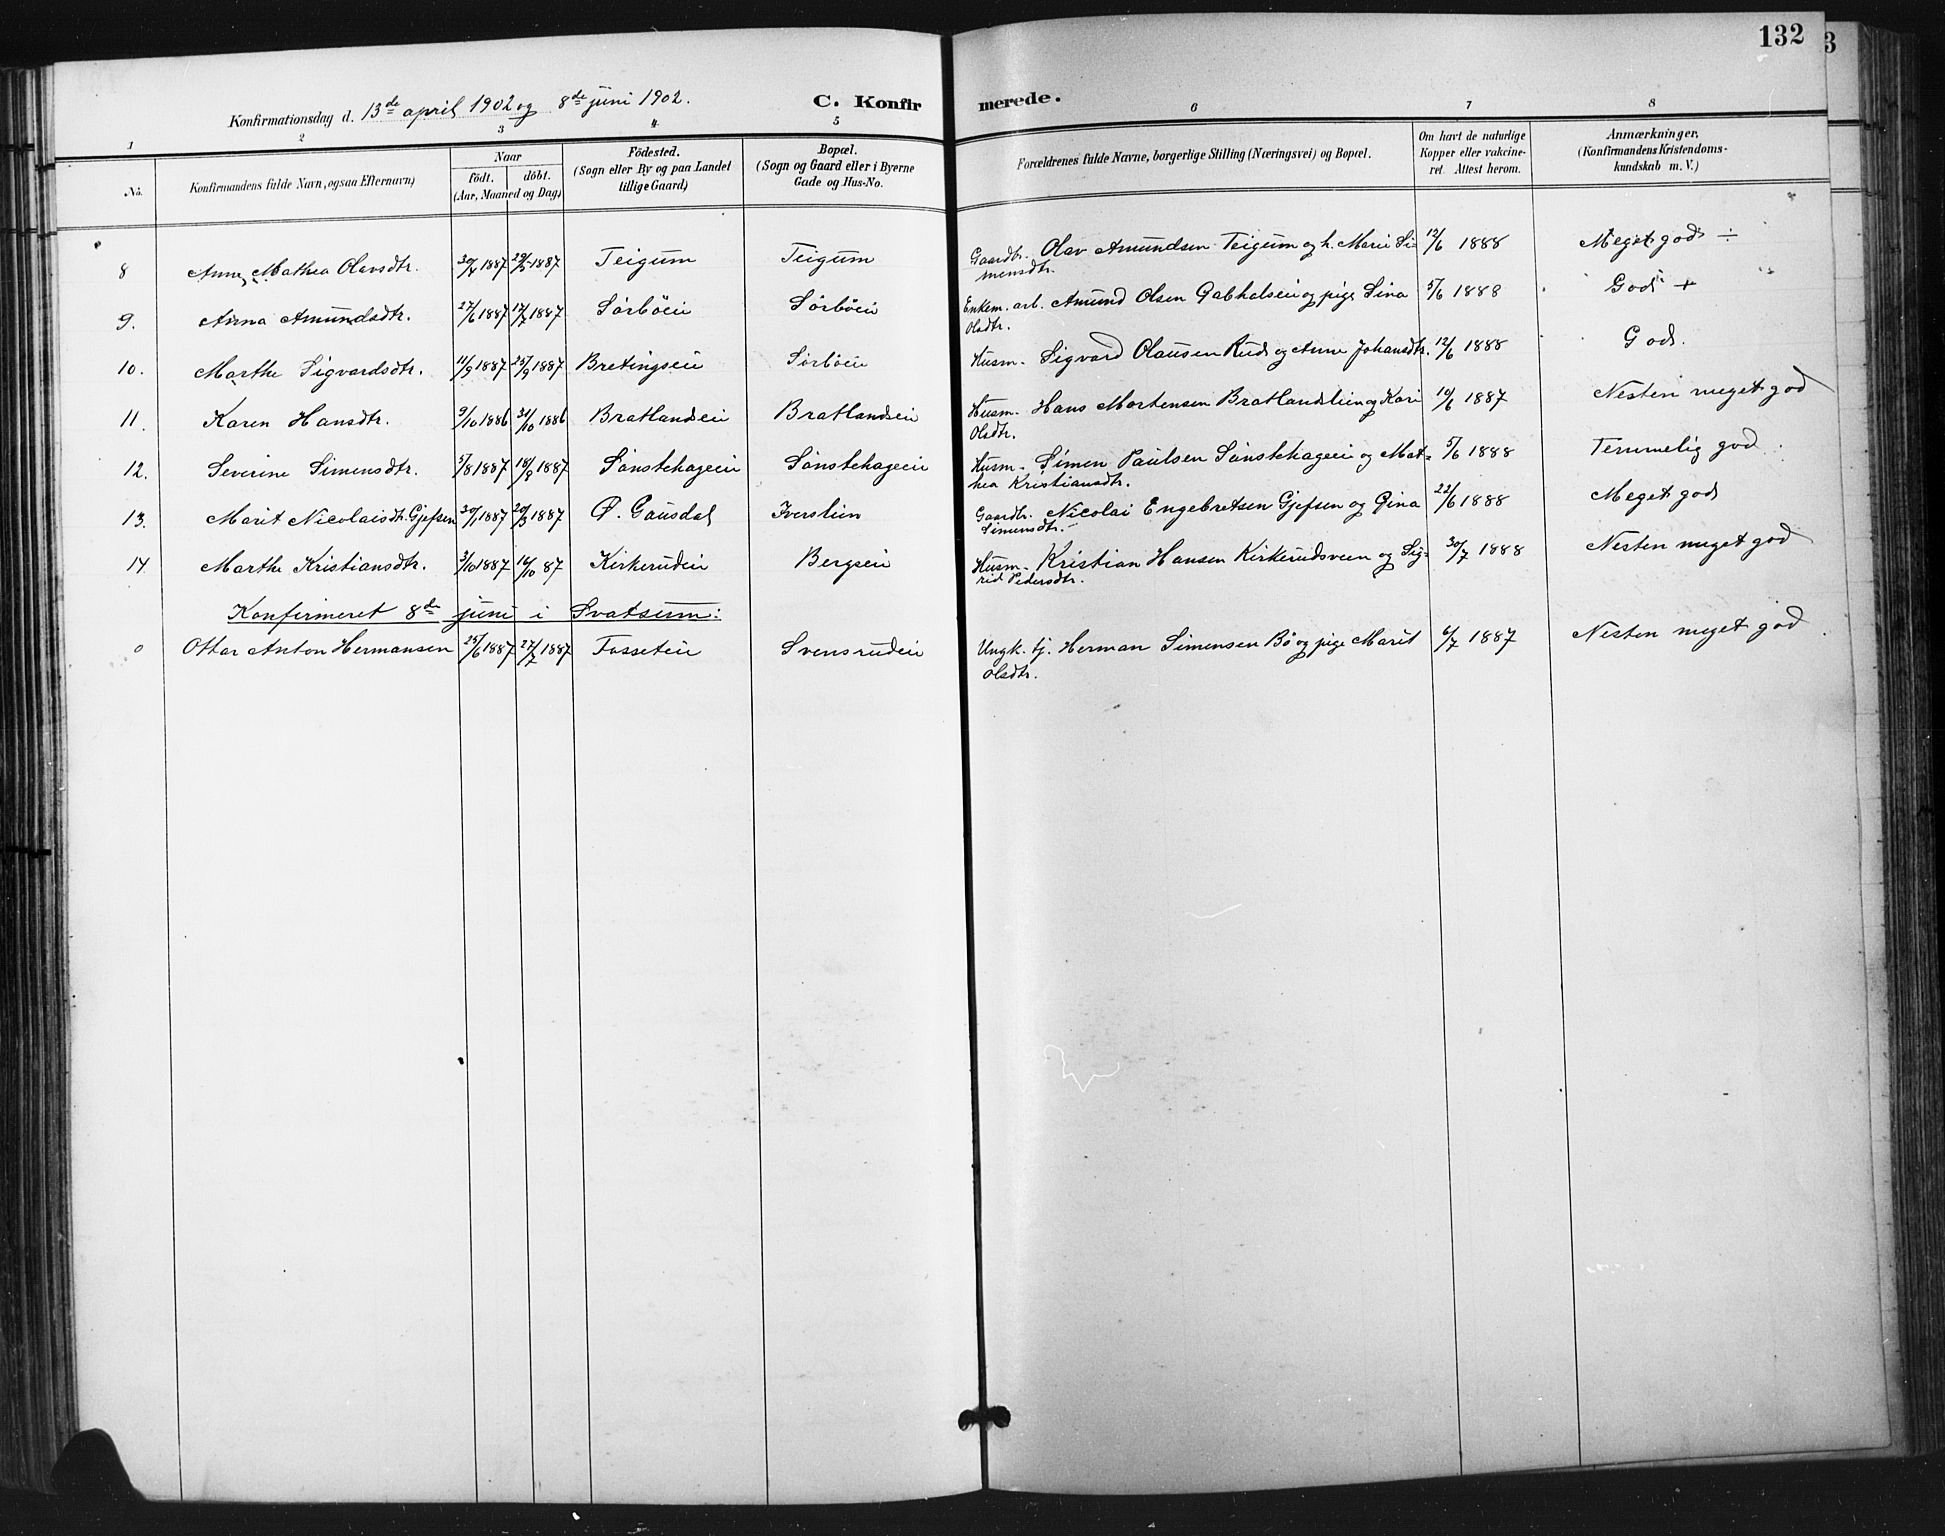 132
3
Konfirmationsdag d. 13de april 1902 og 8de juni 1902.
C. Konfirmerede.
1 2 3 4 5 6 7 8
No.
Konfirmandens fulde Navn, ogsaa Efternavn)
Naar
födt. döbt.
(Aar, Maaned og Dag)
Födested.
(Sogn eller By og paa Landet
tillige Gaard)
Bopæl.
(Sogn og Gaard eller i Byerne
Gade og Hus-No.
Forældrenes fulde Navne, borgerlige Stilling (Næringsvei) og Bopæl.
Om havt de naturlige
Kopper eller vakcine-
ret. Attest herom.
Anmærkninger,
(Konfirmandens Kristendoms-
kundskab m. V.)
8 Anne Mathea Olavsdtr. 1887 1887 Teigum Teigum Gaardbr. Olav Amundsen Teigum og h. Marie Si-
mensdtr. 12/6 1888 Meget god ÷
9. Anna Amundsdtr. 27/6 1887 17/7 1887 Sörböeie Sörböeie Enkem. arb. Amund Olsen Gabhalseie og pige Sina
Olsdtr. 5/6 1888 God +
10. Marthe Sigvardsdtr. 11/9 1887 25/9 1887 Bretingseie Sörböeie Husm. Sigvard Olausen Rud og Anne Johansdtr. 12/6 1888 God.
11. Karen Hansdtr. 9/10 1886 31/10 1886 Bratlandseie Bratlandseie Husm. Hans Mortensen Bratlandslien og Kari
Olsdtr. 10/6 1887 Nesten meget god
12. Severine Simensdtr. 5/8 1887 18/8 1887 Sönstehageeie Sönstehageeie Husm. Simen Paulsen Sönstehageeie og Mat=
hea Kristiansdtr. 5/6 1888 Temmelig god.
13. Marit Nicolaisdtr. Gjefsen 30/1 1887 20/3 1887 Ø. Gausdal Iverslien Gaardbr. Nicolai Engebretsen Gjefsen og Gina
Simensdtr. 22/6 1888 Meget god
14 Marthe Kristiansdtr. 3/10 1887 16/10 87 Kirkerudeie Bergseie Husm. Kristian Hansen Kirkerudsveen og Sig=
rid Pedersdtr. 30/7 1888 Nesten meget god
Konfirmeret 8de juni i Svatsum:
0 Ottar Anton Hermansen 25/6 1887 27/7 1887 Fosseteie Svensrudeie Ungk. tj. Herman Simensen Bö og pige Marit
Olsdtr. 6/7 1887 Nesten meget god